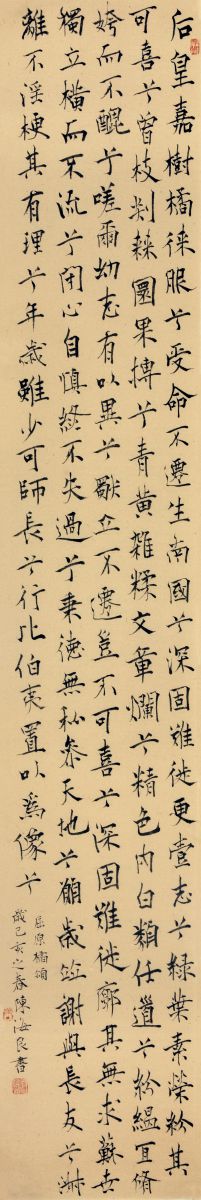 后皇嘉樹橘徠服兮受命不遷生南國兮深固難徙更壹志兮綠葉素榮紛其
可喜兮曾枝剡棘圜果摶兮青黃雜糅文章爛兮精色內白類任道兮紛緼宜脩
姱而不醜兮嗟爾幼志有以異兮獨立不遷豈不可喜兮深固難徙廓其無求蘇世
獨立橫而不流兮閉心自慎終不失過兮秉德無私參天地兮願歲竝謝與長友兮淋
離不淫梗其有理兮年歲雖少可師長兮行比伯夷置以爲像兮
屈原橘頌
歲己亥之春陳海良書